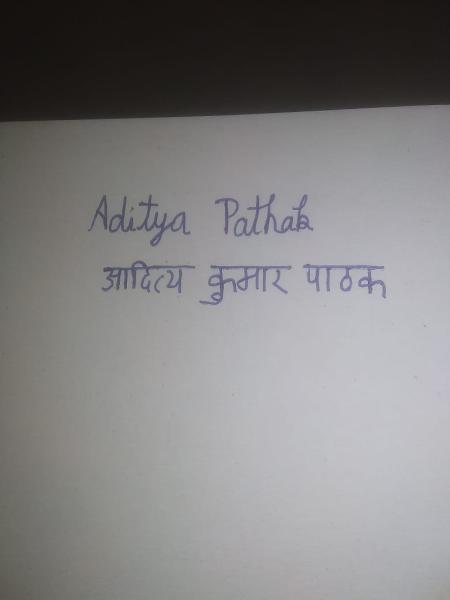 Aditya Pathak
आदित्य कुमार पाठक